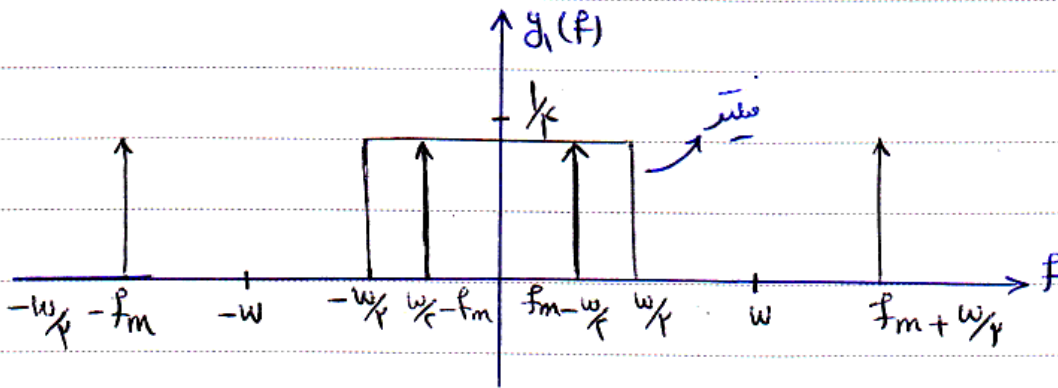 y₁(f)
۱/۲
فیلتر
f
-w/۲ - fm -w -w/۲ w/۲ - fm fm - w/۲ w/۲ w fm + w/۲